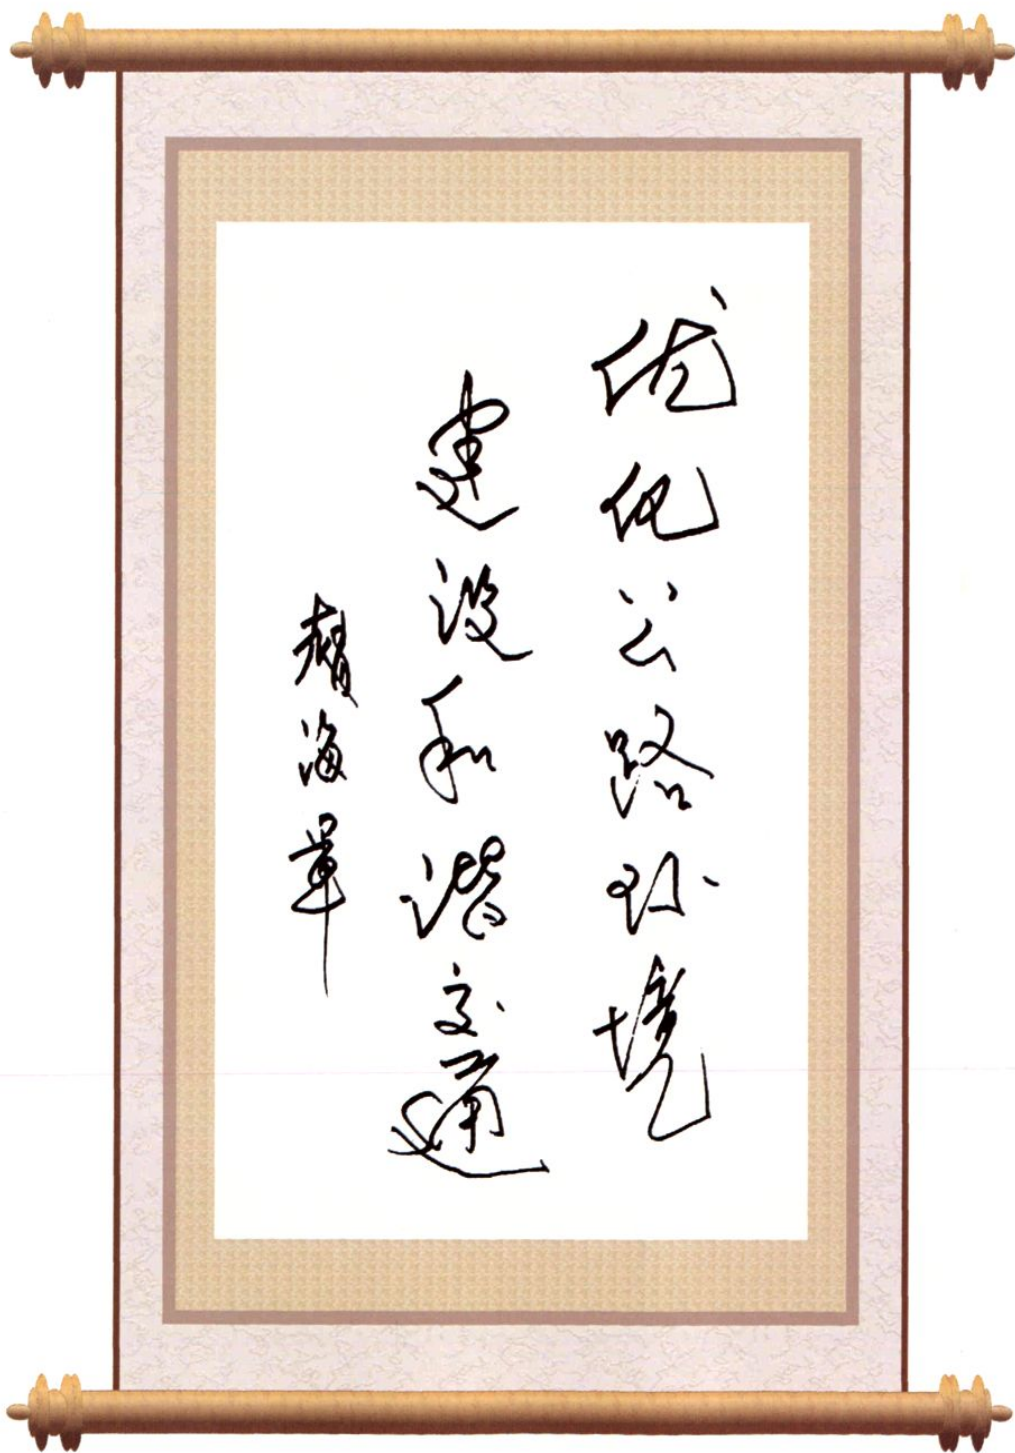 优化公路环境
建设和谐交通
海军